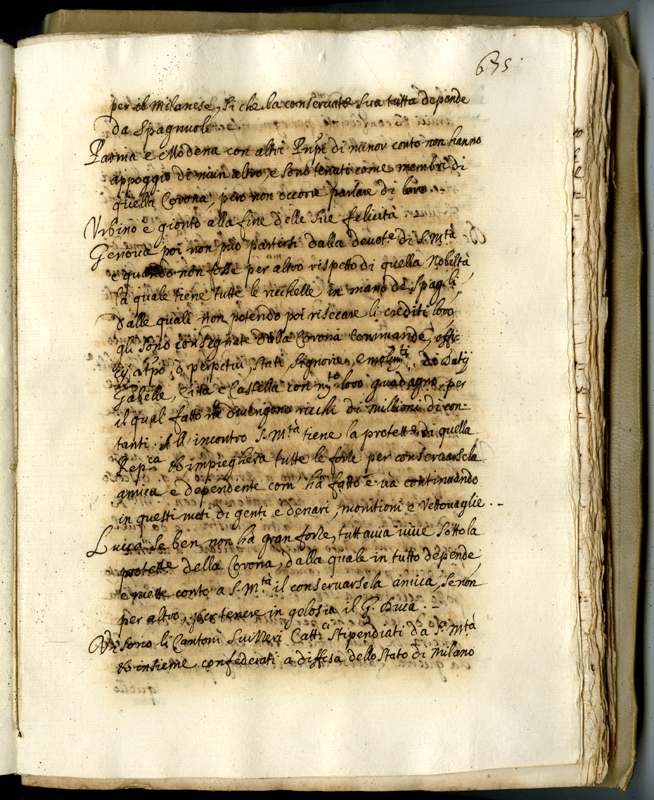 635.
per il Milanese, si che la conservat.e sua tutta depende
da Spagnuoli
Parma e Modena con altri Prñpi di minor conto non hanno
appoggio di niun altro, e sono tenuti come membri di
quella Corona, però non occorre parlare di loro.
Urbino è gionto alla fine delle sue felicità
Genova poi non può partirsi dalla devot.e di S. M.tà
e quando non fosse per altro rispetto di quella Nobiltà
la quale tiene tutte le ricchezze in mano di Spag.li,
dalle quali non potendo poi risecare li crediti loro
gli sono consegnate dalla Corona Commande, offi-
cij a tp̃o, ò perpetui, stati, signorie, emolum.ti, Datij
Gabelle, Città e Castella con m.to loro guadagno, per
il qual fatto ne divengono ricchi di millioni di con-
tanti. All'incontro S. M.tà tiene la protett.e di quella
Rep.ca et impiegherà tutte le forze per conservarsela
amica e dependente com' ha fatto e và continuando
in questi moti di genti e denari, monitioni e Vettovaglie.
Lucca se ben non ha gran forze, tuttavia vive sotto la
protett.e della Corona, dalla quale in tutto depende
e mette conto a S. M.tà il conservarsela amica, se non
per altro, per tenere in gelosia il G. Duca.
Vi sono li Cantoni Suizzeri Catt.ci stipendiati da S. M.tà
et insieme confederati a diffesa dello Stato di Milano
quello